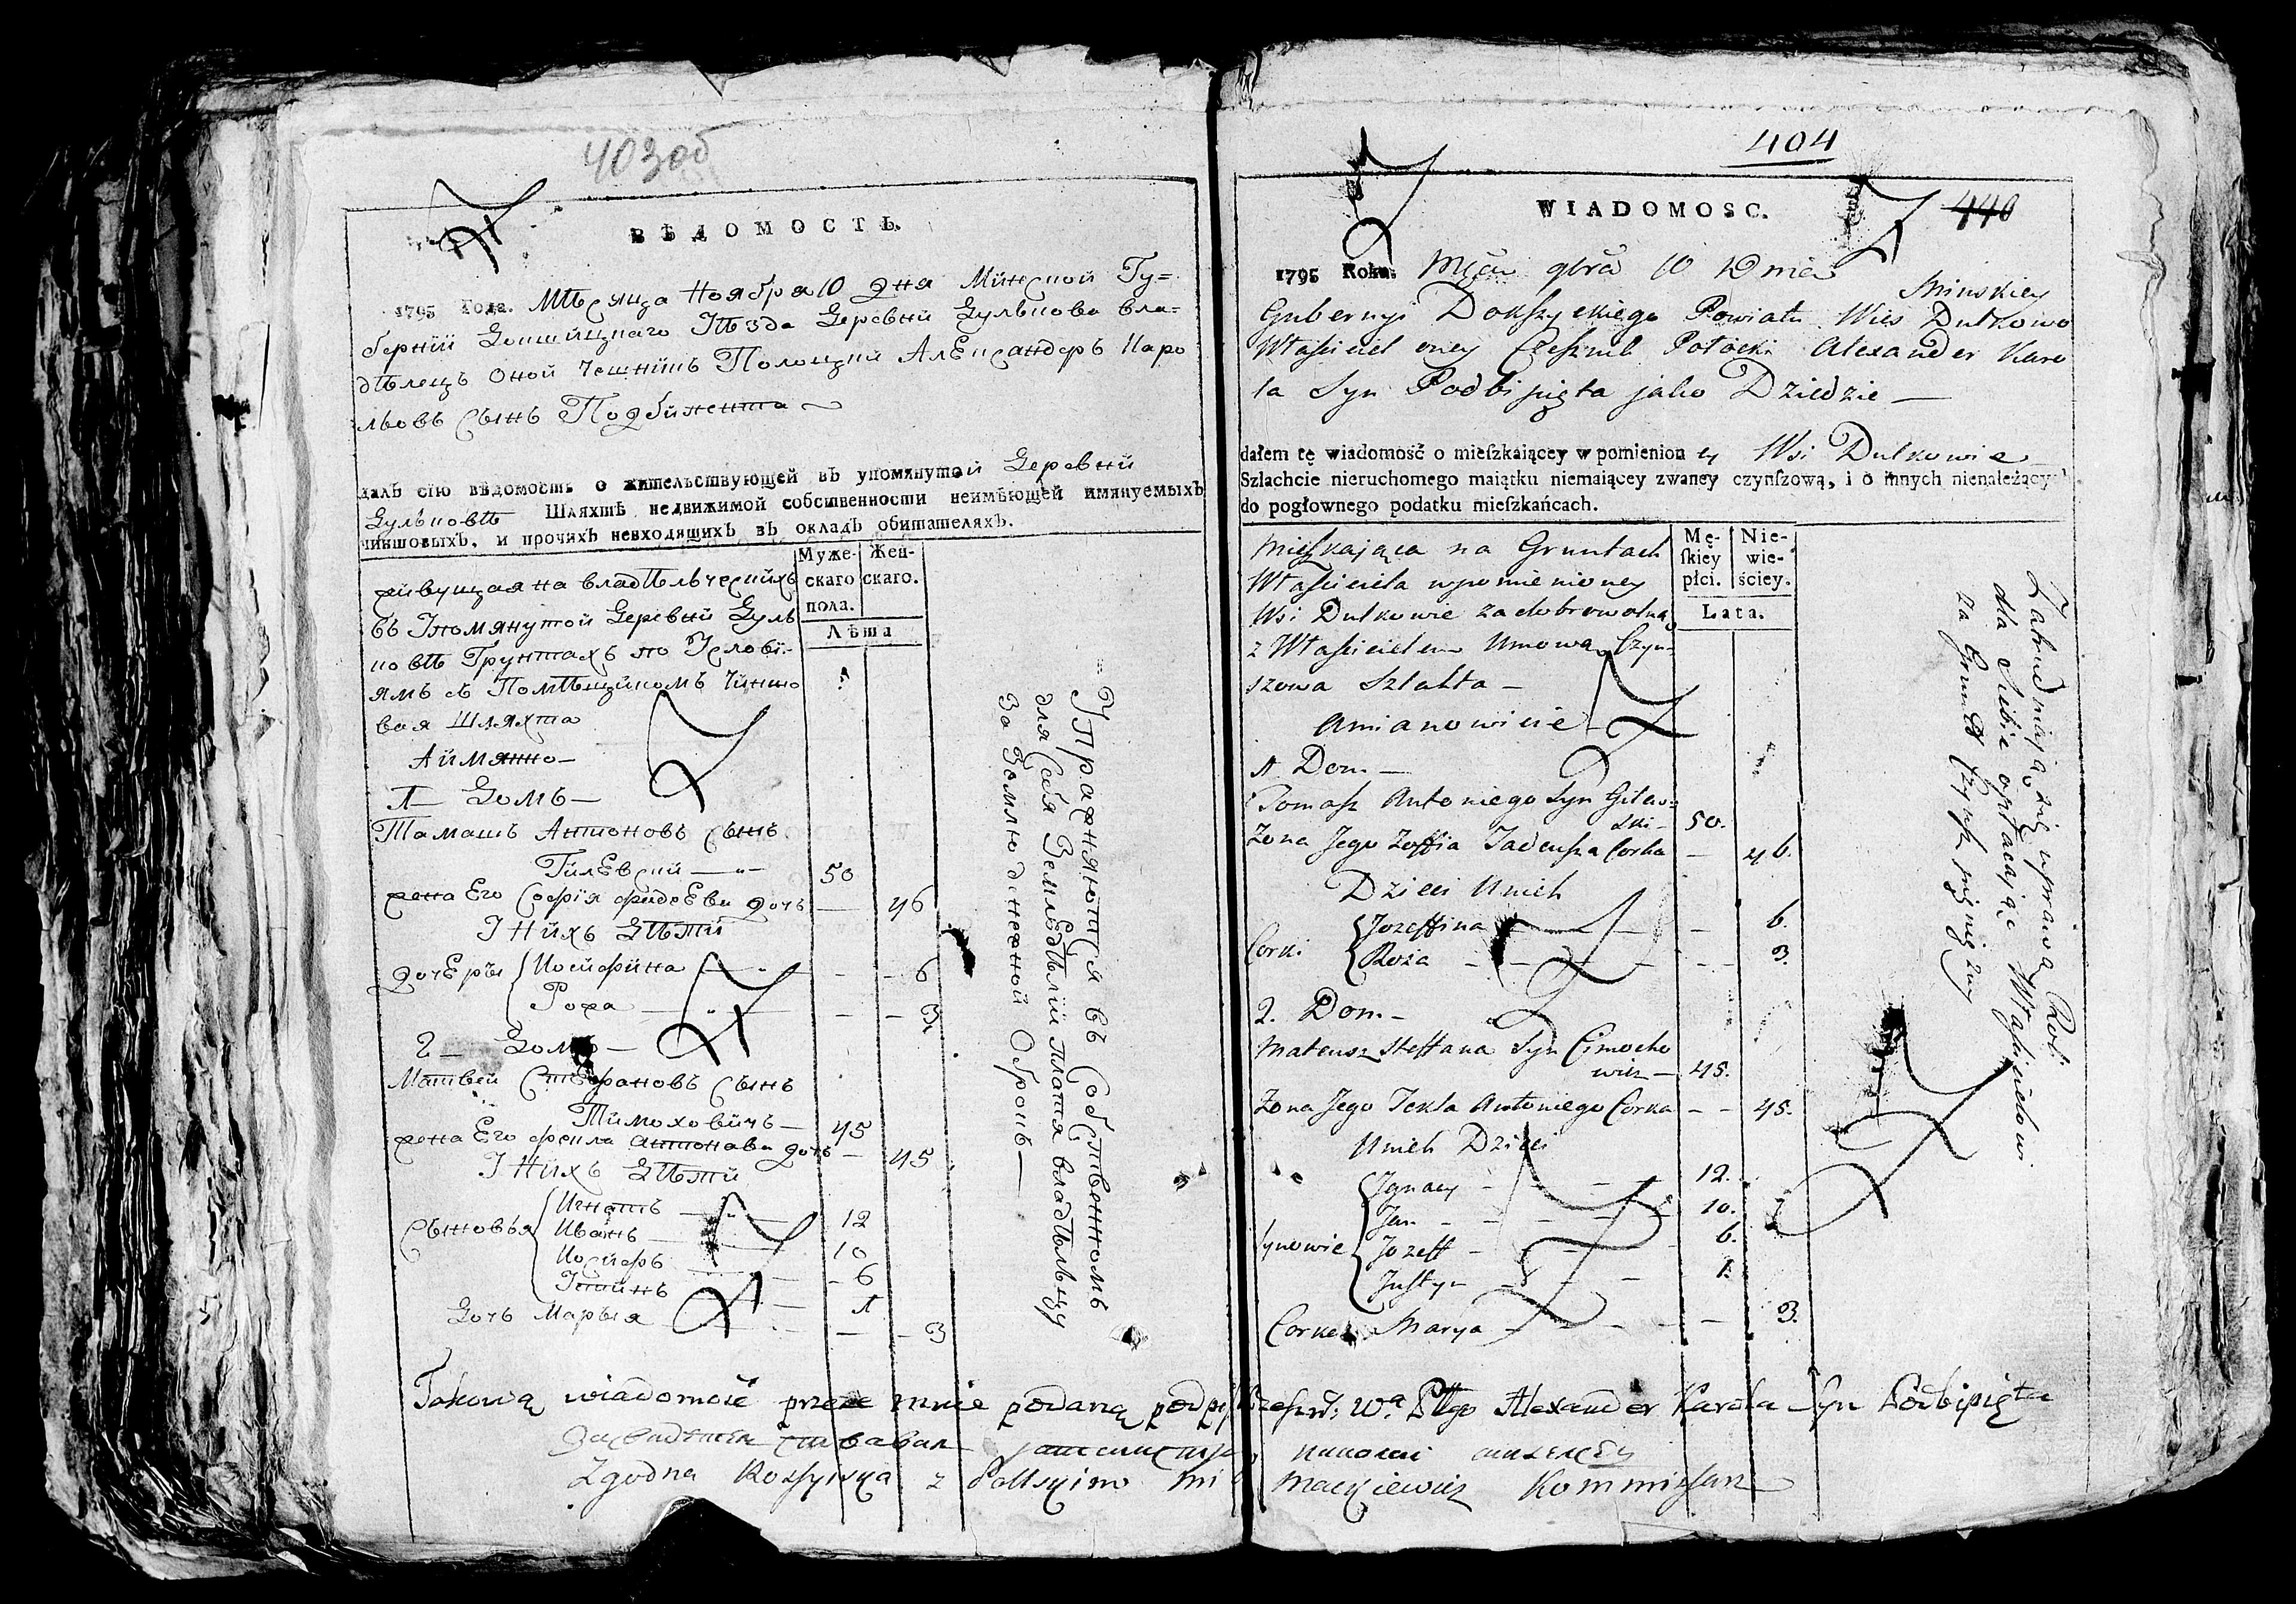 403об
ВѢДОМОСТЬ.
1795 Года. Мѣсяца Ноября 10 дна Минской Гу=
берніи Докшицкаго Уѣзда Деревни Дулькова вла=
дѣлецъ оной Чешникъ Полоцкій Александеръ Каро
льовъ Сынъ Подбипента
далъ сію вѣдомость о жительствующей въ упомянутой Деревни
Дульковѣ Шляхтѣ недвижимой собственности неимѣющей имянуемыхъ
чиншовыхъ, и прочихъ невходящихъ въ окладъ обитателяхъ.
Муже- Жен-
скаго скаго.
пола.
Лѣта
живущая на владѣльческихъ
въ Упомянутой Деревни Дуль
ковѣ Грунтахъ по Услові-
ямъ съ Помѣщикомъ Чиншо
вая Шляхта
Аимянно
1 Домъ
Тамашъ Антоновъ Сынъ
Гилевскій 50
жена Его Софія Фадеева дочь 46
У Нихъ Дѣти
дочеры Иосифина 6
Рожа 3
2 Домъ
Матвей Стефановъ Сынъ
Тимоховичъ 45
жена Его Фекла Антонова дочь 45
У Нихъ Дѣти
Сыновья Игнатъ 12
Иванъ 10
Иосифъ 6
Устинъ 1
Дочь Марыя 3
Упражняются въ Собственномъ
для Себя Земледѣліи платя владѣльцу
За Землю денежной Оброкъ
404
WIADOMOSC.
440
1795 Roku. Mςca 9bra 10 Dnia Minskiey
Gubernyi Dokszyckiego Powiatu Wies Dulkowo
Własciciel oney Czesznik Połocki Alexander Karo
la Syn Podbipięta jako Dziedzic
dałem tę wiadomość o mieſzkaiącey w pomienion ey Wsi Dulkowie
Szlachcie nieruchomego maiątku niemaiącey zwaney czynſzową, i o innych nienależących
do pogłownego podatku mieſzkańcach.
Mę- Nie-
ſkiey wie-
płci. ściey.
Lata.
Mieszkająca na Gruntach
Własciciela wpomienioney
Wsi Dulkowie za dobrowolną
z Własicielem Umową Czyn-
szowa Szlahta
Amianowicie
1 Dom
Tomasz Antoniego Syn Gilew-
ski 50.
Zona Jego Zoffia Tadeusza Corka 46.
Dzieci Unich
Corki Jozeffina 6.
Roża 3.
2. Dom
Mateusz Steffana Syn Cimocho
wicz 45.
Zona Jego Tekla Antoniego Corka 45.
Unich Dzieci
Synowie Jgnacy 12.
Jan 10.
Jozeff 6.
Justyn 1.
Corka Marya 3.
Zatrudniają się uprawą Roli
dla Siebie opłacając Własicielowi
za Grunta Czynsz pieniężny
Takową wiadomość przeze mnie podaną podpisuję Alexander Karola Syn Podbipięta
Zgodna Rossyiska z Polskim Mackiewicz Kommissarz